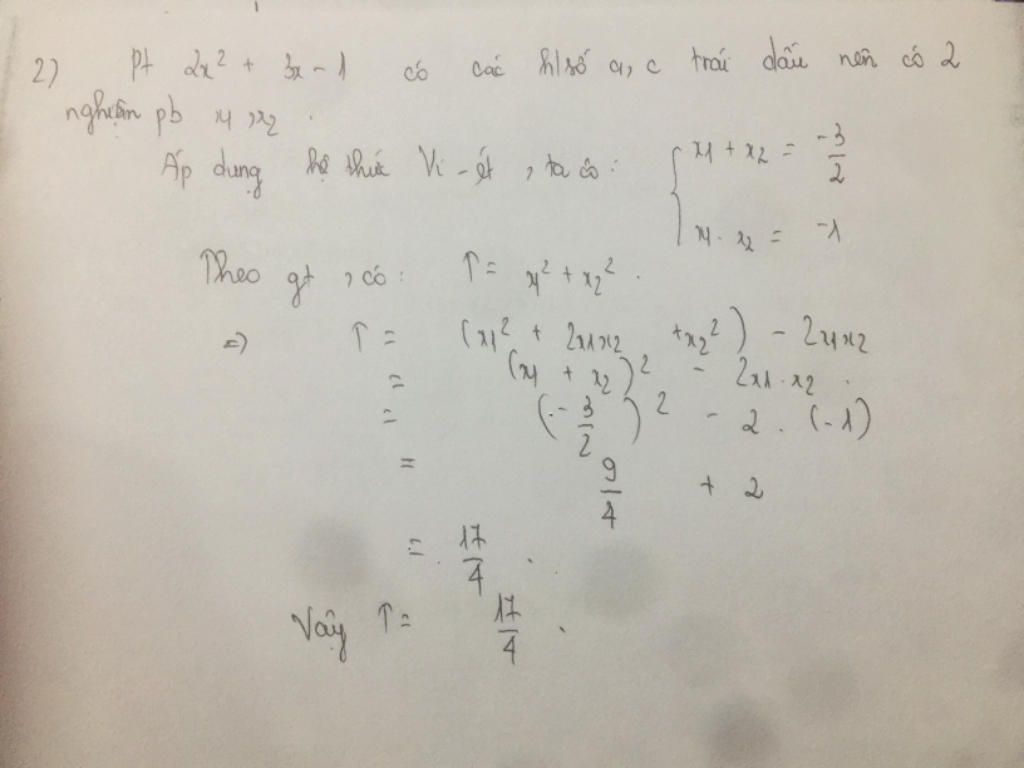 2) Pt 2x² + 3x - 1 có các h/số a, c trái dấu nên có 2
nghiệm pb x1, x2.
Áp dụng hệ thức Vi-ét, ta có: { x1 + x2 = -3/2
x1. x2 = -1
Theo gt, có: T = x1² + x2².
=> T = (x1² + 2x1x2 + x2²) - 2x1x2
= (x1 + x2)² - 2x1.x2.
= (-3/2)² - 2. (-1)
= 9/4 + 2
= 17/4.
Vậy T = 17/4.